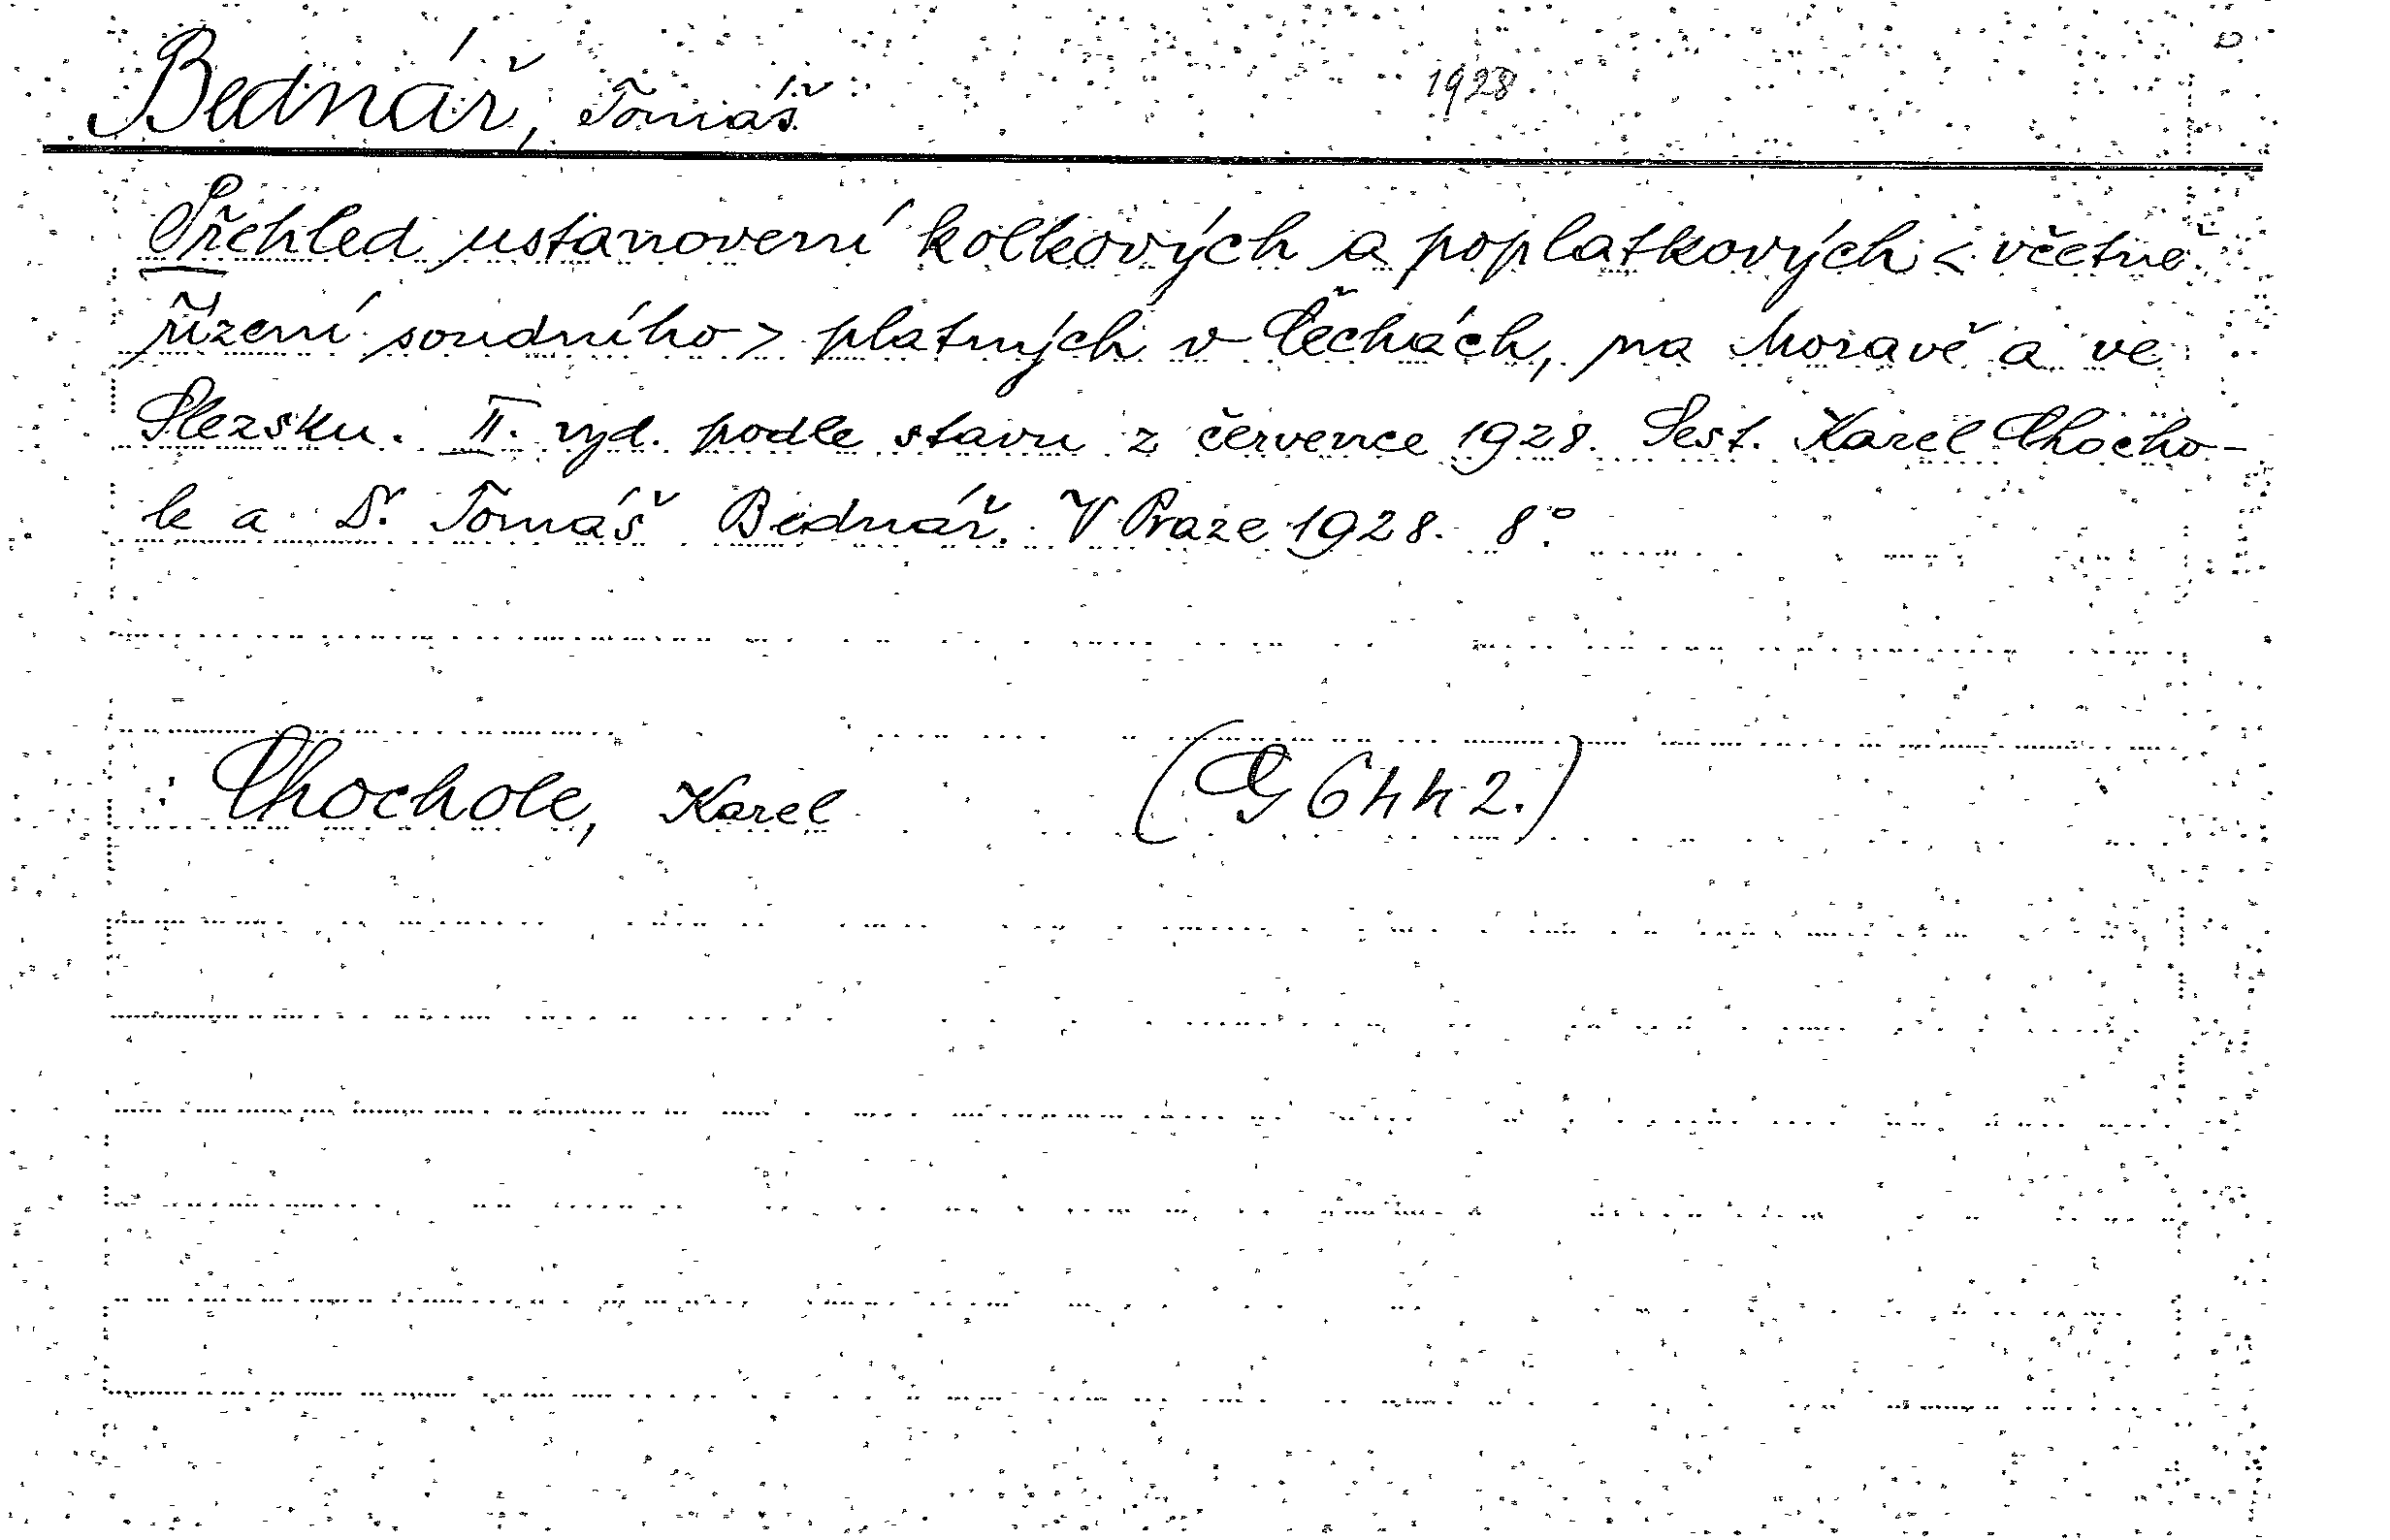 Bednář, Tomáš 1928
Přehled ustanovení kolkových a poplatkových < včetně
řízení soudního > platných v Čechách, na Moravě a ve
Slezsku. II. vyd. podle stavu z července 1928. Sest. Karel Chocho-
le a Dr. Tomáš Bednář. V Praze 1928. 8°.
Chochole, Karel (G 6442.)